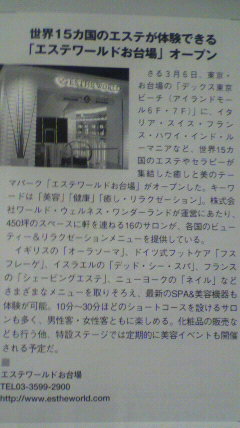 世界15カ国のエステが体験できる
「エステワールドお台場」オープン
さる3月6日、東京・
お台場の「デックス東京
ビーチ（アイランドモー
ル6F・7F）」に、イタ
リア・スイス・フラン
ス・ハワイ・インド・ル
ーマニアなど、世界15カ
国のエステやセラピーが
集結した癒しと美のテー
マパーク「エステワールドお台場」がオープンした。キーワ
ードは「美容」「健康」「癒し・リラクゼーション」。株式会
社ワールド・ウェルネス・ワンダーランドが運営にあたり、
450坪のスペースに軒を連ねる16のサロンが、各国のビュー
ティー&リラクゼーションメニューを提供している。
イギリスの「オーラソーマ」、ドイツ式フットケア「フス
フレーゲ」、イスラエルの「デッド・シー・スパ」、フランス
の「シェービングエステ」、ニューヨークの「ネイル」など
さまざまなメニューを取りそろえ、最新のSPA&美容機器も
体験が可能。10分〜30分ほどのショートコースを設けるサロ
ンも多く、男性客・女性客ともに楽しめる。化粧品の販売な
ども行う他、特設ステージでは定期的に美容イベントも開催
される予定だ。
エステワールドお台場
TEL03-3599-2900
http://www.estheworld.com